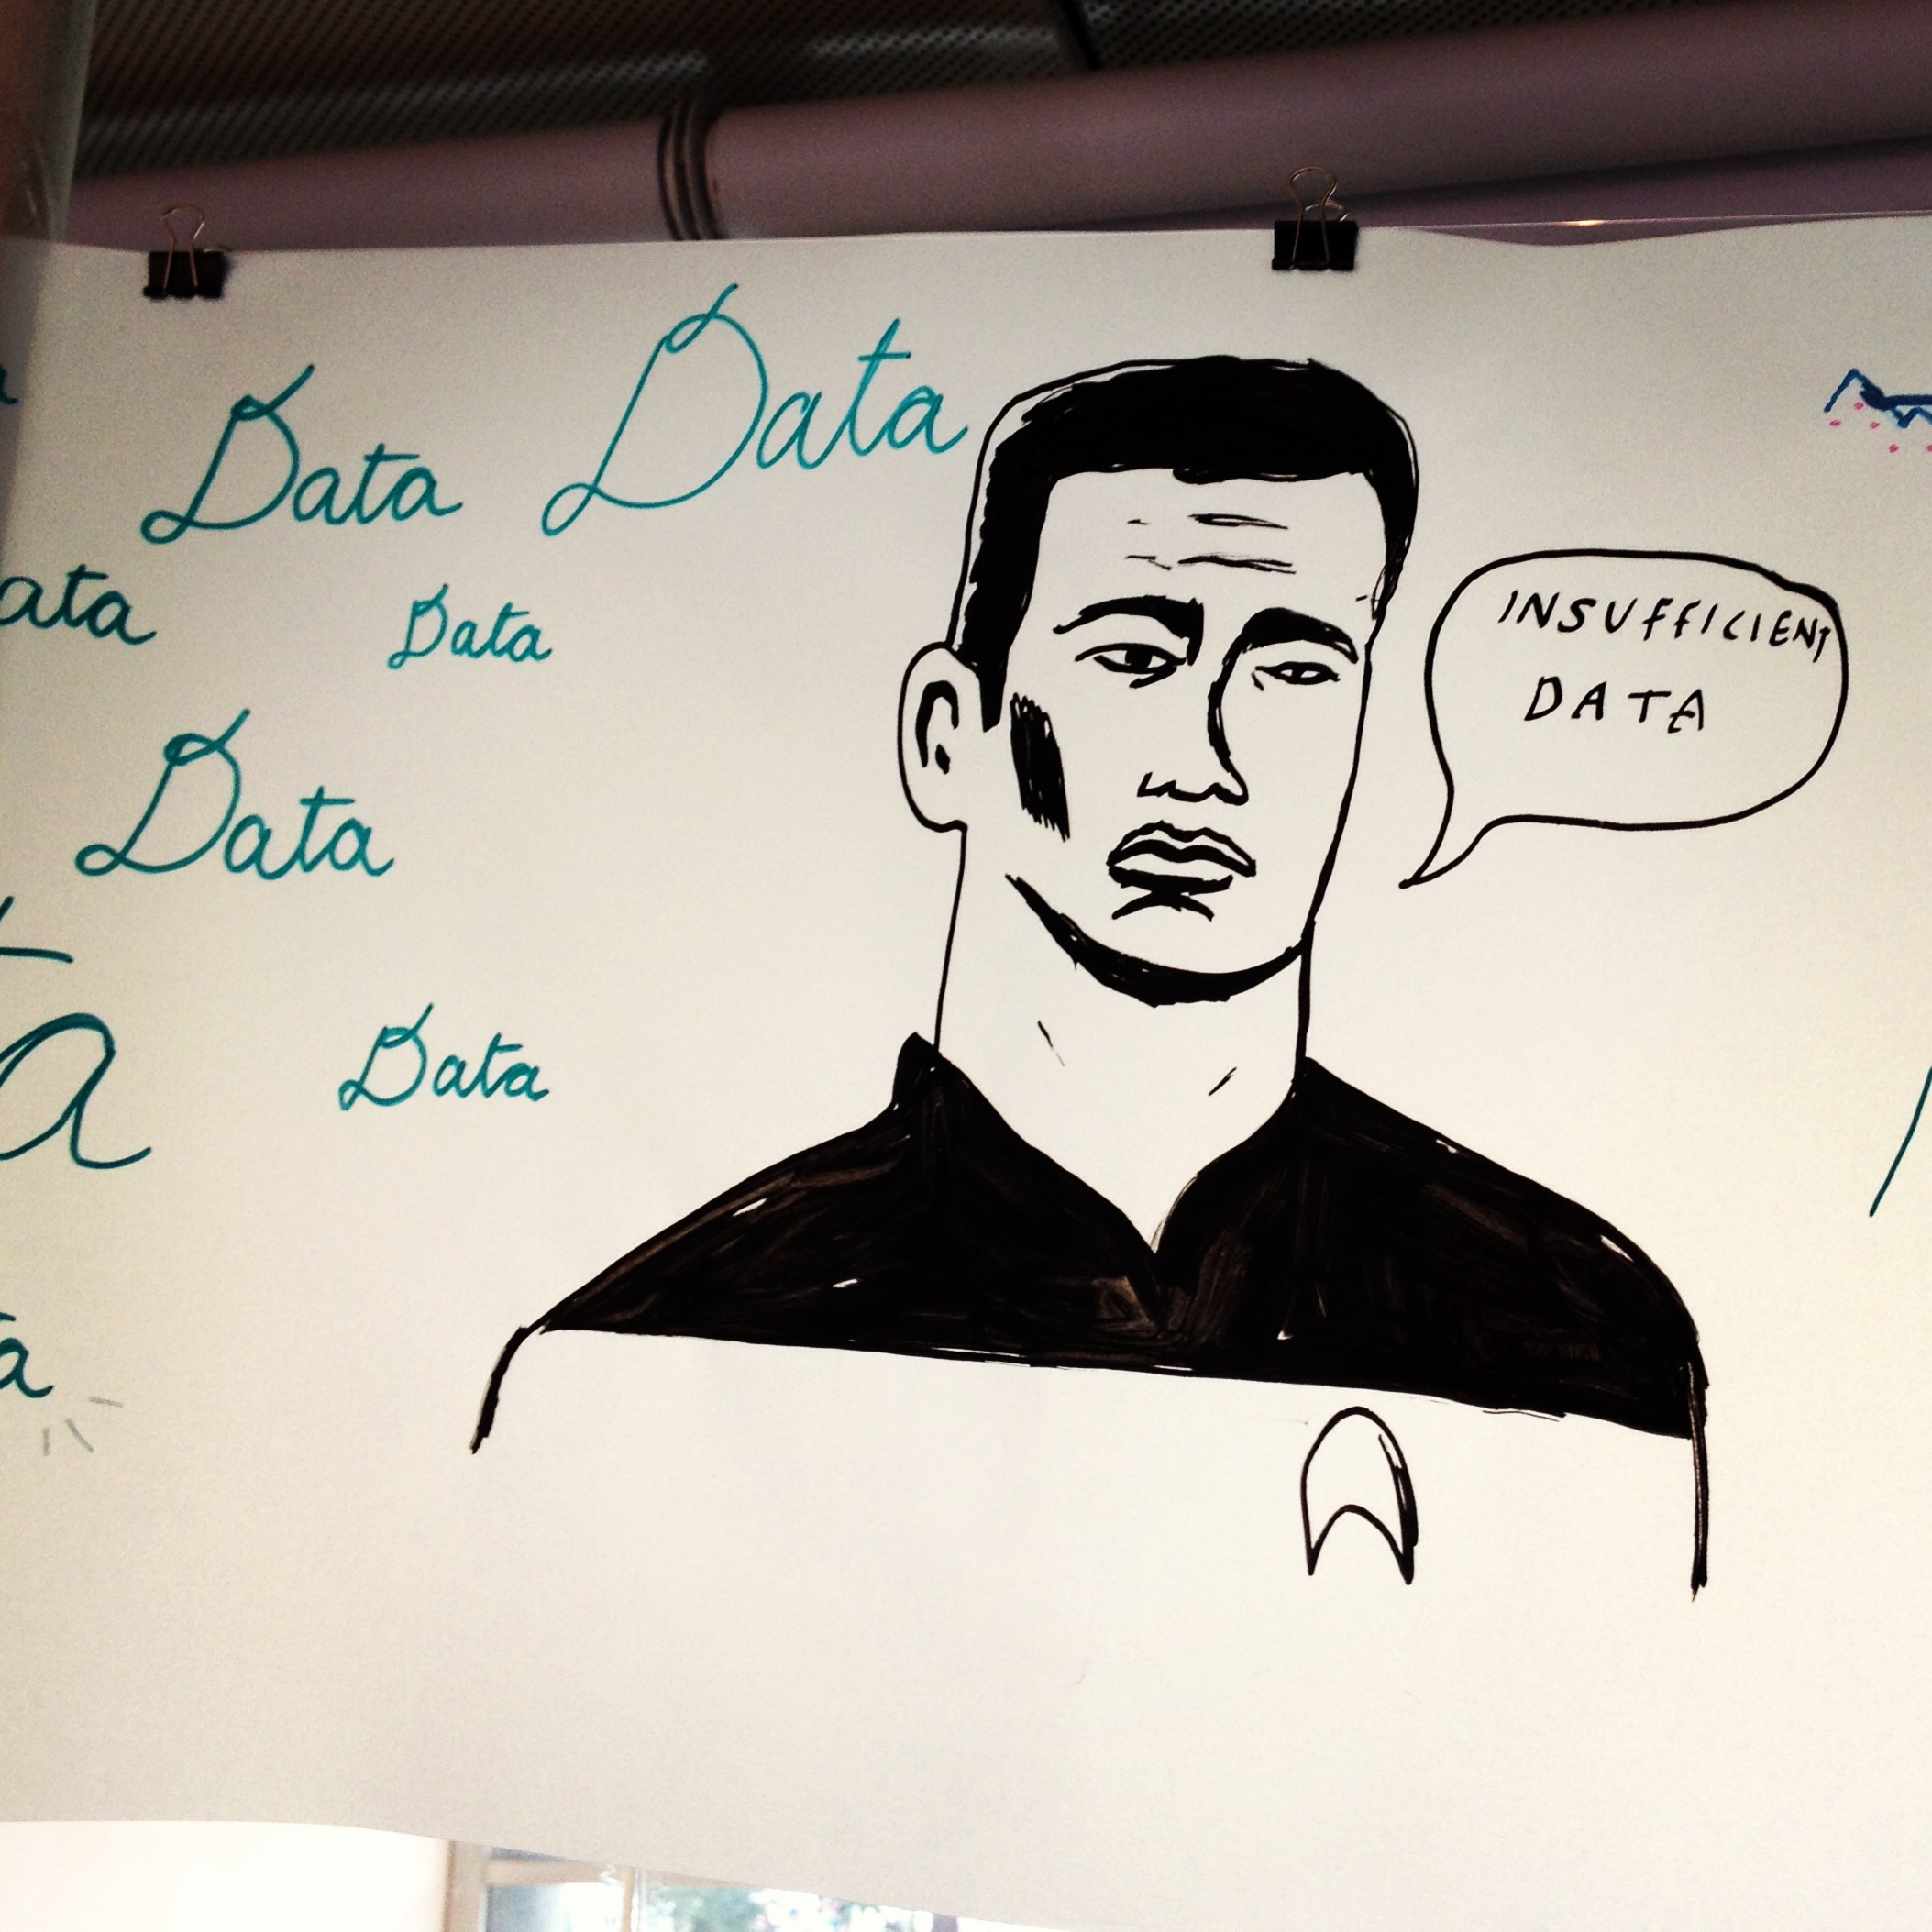 Data
Data
ata
Data
Data
ta
Data
a
INSUFFICIENT
DATA